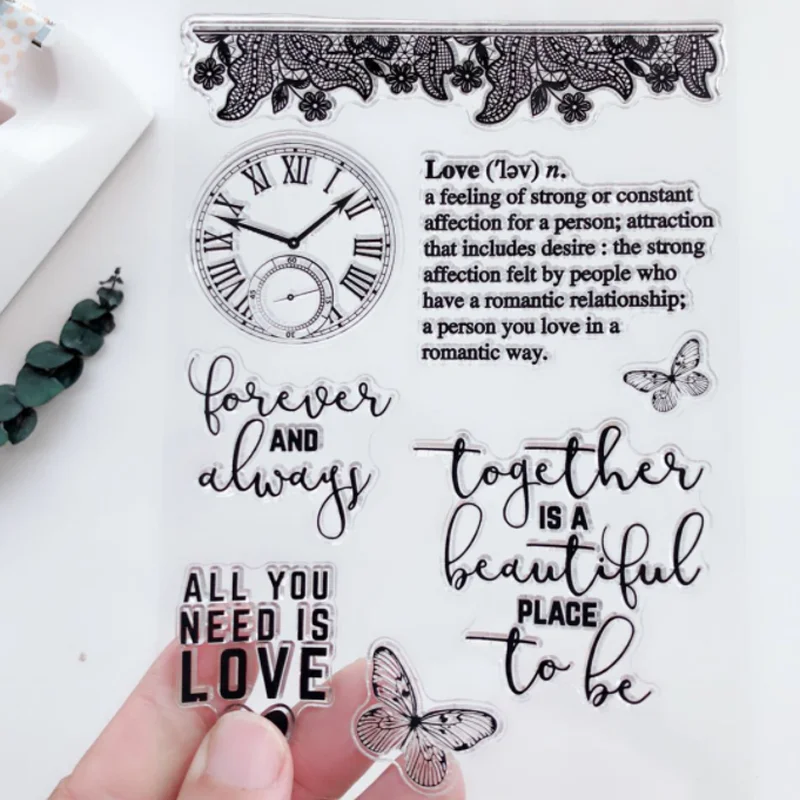 XII
I
II
III
IX
X
XI
VIII
VII
60
Love ('ləv) n.
a feeling of strong or constant
affection for a person; attraction
that includes desire : the strong
affection felt by people who
have a romantic relationship;
a person you love in a
romantic way.
forever
AND
always
together
IS A
beautiful
PLACE
to be
ALL YOU
NEED IS
LOVE